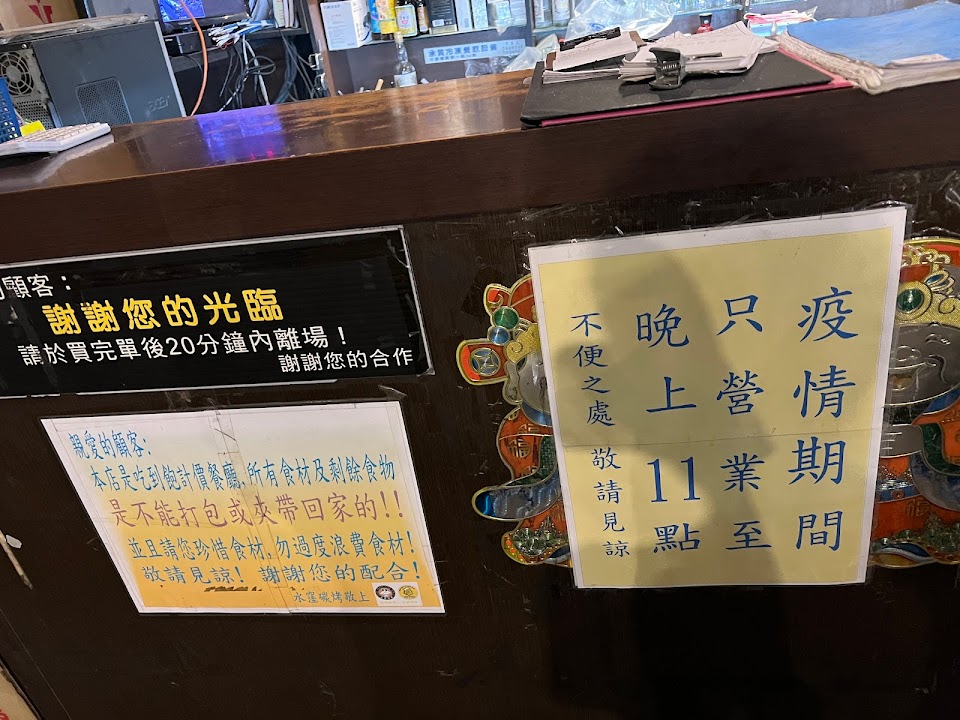 顧客：
謝謝您的光臨
請於買完單後20分鐘內離場！
謝謝您的合作
親愛的顧客:
本店是吃到飽計價餐廳,所有食材及剩餘食物
是不能打包或夾帶回家的!!
並且請您珍惜食材,勿過度浪費食材!
敬請見諒! 謝謝您的配合!
水窪碳烤敬上
疫情期間
只營業至
晚上11點
不便之處 敬請見諒
acer